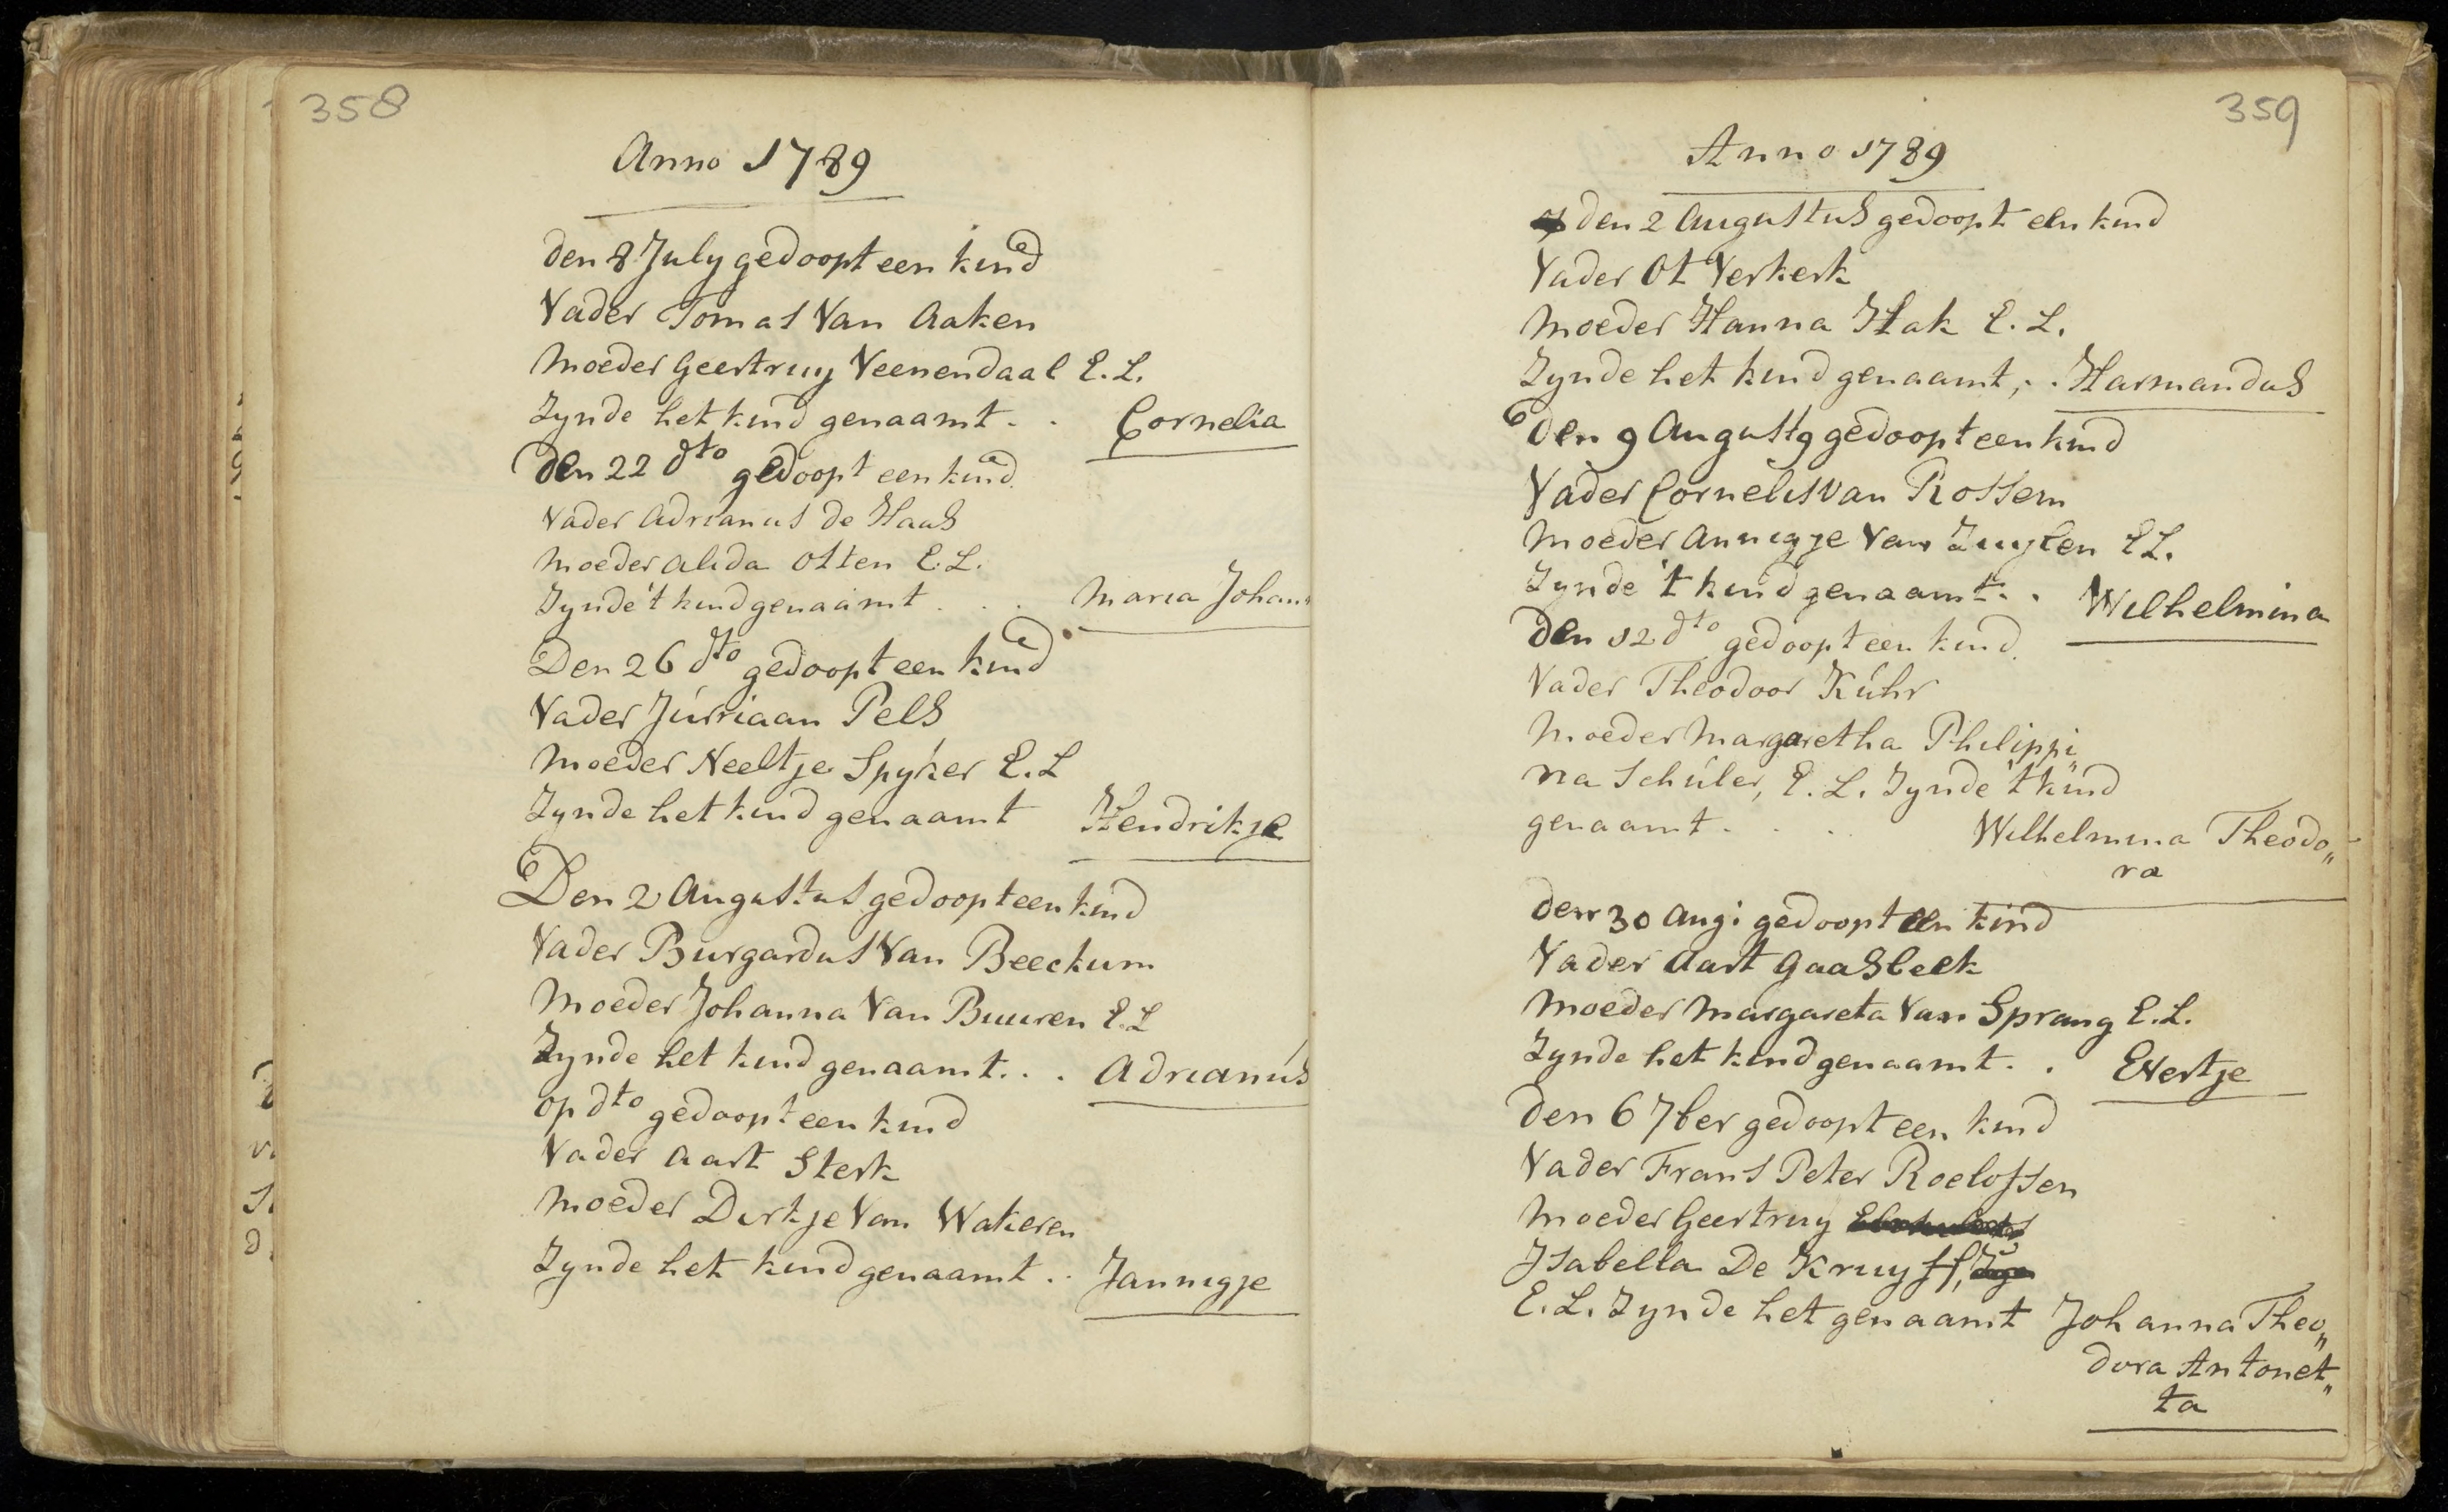 358
Anno 1789
den 8 July gedoopt een kind
Vader Tomas Van Aaken
Moeder Geertruy Veenendaal E. L.
Zynde het kind genaamt . . Cornelia
Den 22 dto gedoopt een kind
Vader Adrianus De Haas
Moeder Alida Otten E. L.
Zynde 't kind genaamt . . . Maria Johan
Den 26 dto gedoopt een kind
Vader Júrriaan Pels
Moeder Neeltje Spyker E. L
Zynde het kind genaamt Hendrikje
Den 2 Augustus gedoopt een kind
Vader Burgardus Van Beeckum
Moeder Johanna Van Buuren E. L
Zynde het kind genaamt. . . Adrianús
op dto gedoopt een kind
Vader Aart Sterk
Moeder Dirkje Van Wakeren
Zynde het kind genaamt . . Jannigje
359
Anno 1789
den 2 Augustus gedoopt een kind
Vader Ot Verkerk
Moeder Hanna Hak E. L.
Zynde het kind genaamt, . . Harmandus
den 9 Augusts gedoopt een kind
Vader Cornelis van Rossem
Moeder Annigje Van Zuylen E L.
Zynde 't kind genaamt. . Wilhelmina
Den 12 dto gedoopt een kind
Vader Theodoor Kúhr
Moeder Margaretha Philippi„
na Schúler, E. L. Zynde 't kind
genaamt . . . Wilhelmina Theodo„
ra
den 30 Aug: gedoopt een kind
Vader Aart Gaasbeek
Moeder Margareta Van Sprang E. L.
Zynde het kind genaamt . . Evertje
Den 6 7ber gedoopt een kind
Vader Frans Peter Roelofsen
Moeder Geertruy
Isabella De Kruyff,
E. L. Zynde het genaamt Johanna Theo„
dora Antonet„
ta